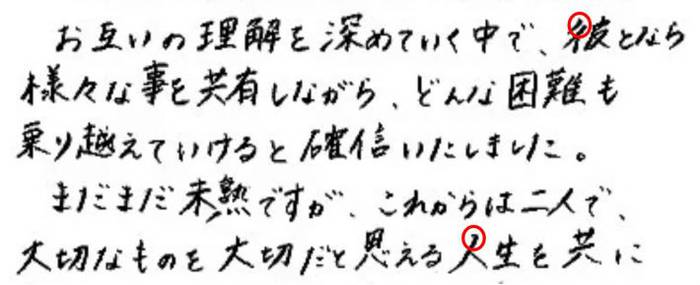 お互いの理解を深めていく中で、彼となら
様々な事を共有しながら、どんな困難も
乗り越えていけると確信いたしました。
まだまだ未熟ですが、これからは二人で、
大切なものを大切だと思える人生を共に